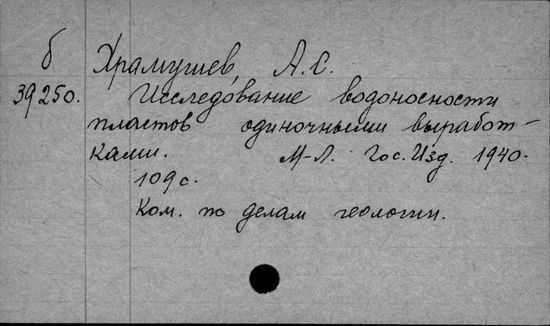 б Храмушев, А.С.
39250. Исследование водоносности
пластов одиночными выработ-
ками. М-Л. Гос.Изд. 1940.
109 с.
Ком. по делам геологии.